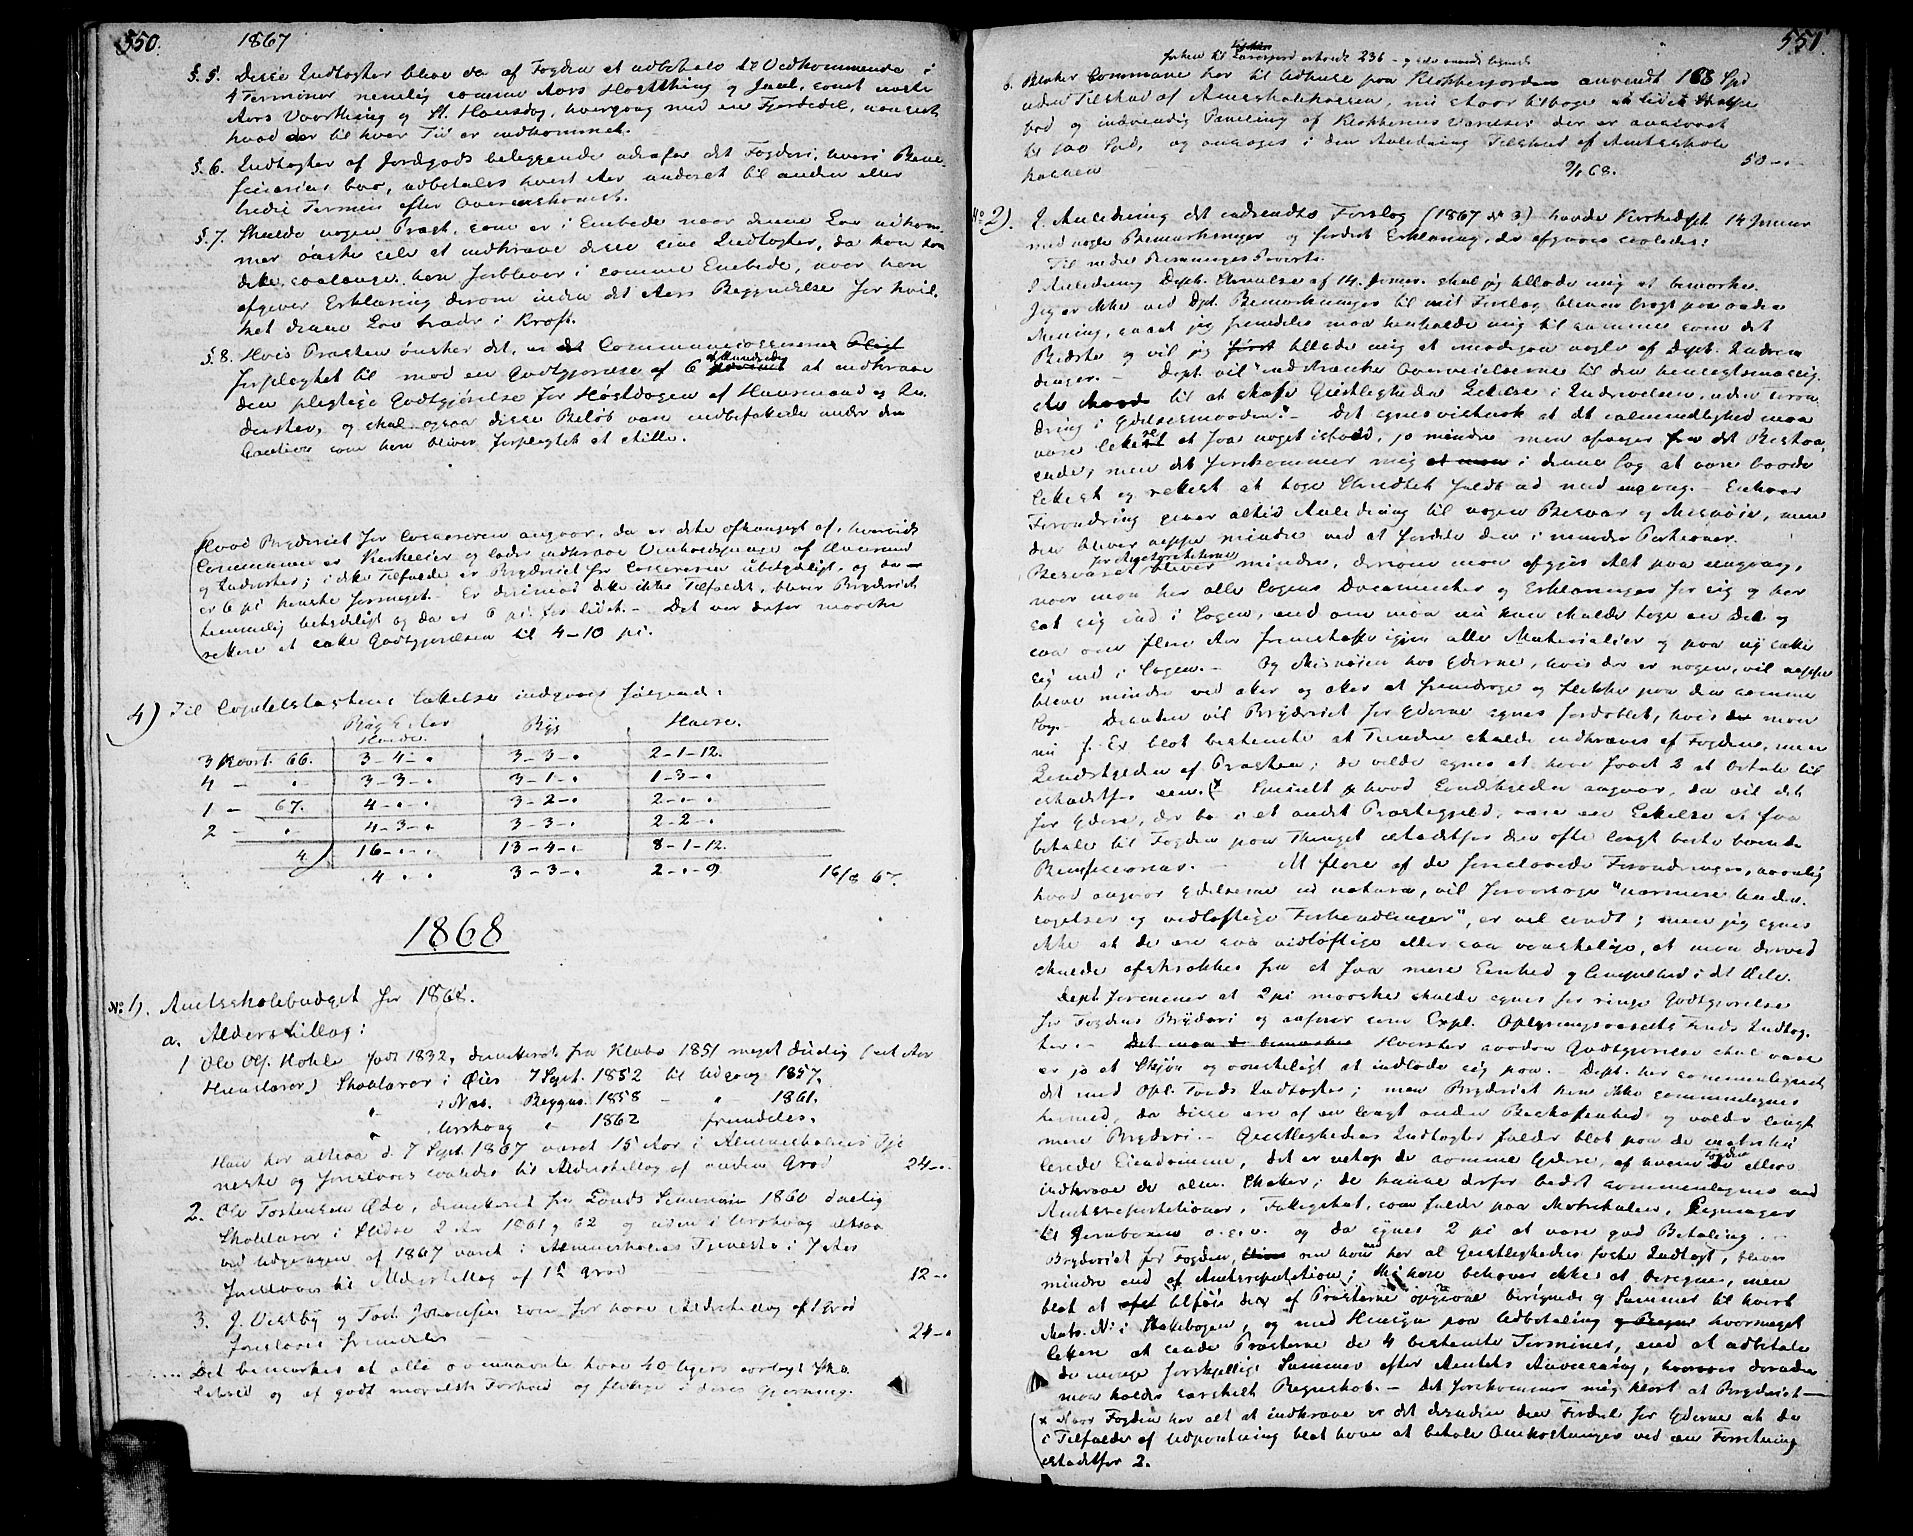 550.
1867
§.5. Disse Indtægter blive da af Fogden at udbetale til Vedkommende i
4 Terminer nemlig samme Aars Høstthing og Juul, samt næste
Aars Vaarthing og St. Hansdag, hvergang med en Fjerdedel, uanseet
hvad der til hver Tid er indkommet.
§.6. Indtægter af Jordgods beliggende udenfor det Fogderi, hvori Bene-
ficiarius boer, udbetales hvert Aar underet til anden eller
tredie Termin efter Overenskomst.
§.7. Skulde nogen Præst, som er i Embede naar denne Lov udkom-
mer ønske selv at indkræve disse sine Indtægter, da kan han
dette, saalænge han forbliver i samme Embede, naar han
afgiver Erklæring derom inden det Aars Begyndelse for hvil-
ket denne Lov træder i Kraft.
§.8. Hvis Præsten ønsker det, er Communecassererne
forpligtet til mod en Godtgjørelse af 6 af Hundrede at indkræve
den pligtige Godtgjørelse for Høstdagen af Huusmænd og In-
derster, og skal ogsaa disse Beløb være indbefattede under den
Caution som han bliver forpligtet at stille.
Hvad Bryderiet for Cassereren angaar, da er dette afhængigt af, hvorvidt
Communen er Kirkeeier og lader indkræve af Huusmænd
og Inderster; i dette Tilfælde er Bryderiet for Cassereren ubetydeligt, og da
er 6 pct. kanske formeget. Er derimod dette ikke Tilfældet, bliver Bryderiet
temmelig betydeligt og da er 6 pct. for lidet. Det var derfor maaske
rettere at sætte Godtgjørelsen til 4-10 pct.
4) Til Capitelstaxtens Sættelse indgaves følgende:
Rug Byg Havre.
3 Kvart. 66. 3-4-" 3-3-" 2-1-12.
4 - " 3-3-" 3-1-" 1-3-"
1 - 67. 4-"-" 3-2-" 2-"-"
2 - " 4-3-" 3-3-" 2-2-"
4 16-"-" 13-4-" 8-1-12.
4-"-" 3-3-" 2-"-9 16/8 67.
1868
No 1). Amtsskolebudget for 1868.
a. Alderstillæg:
1 Ole Ols. Hohle født 1832, dimitteret fra Klæbo 1851 meget duelig (et Aar
Huuslærer) Skolelærer i Øier 7 Sept. 1852 til Udgang 1857.
" i Næs. Beggns. 1858 - " - 1861.
" Urskoug " 1862 fremdeles.
Han har altsaa d. 7 Sept. 1867 været 15 Aar i Almueskolens Tje-
neste og foreslaaes saaledes til Alderstillæg af anden Grad 24-"
2. Ole Torstensen Ødo, dimitteret fra Lunds Seminarium 1860 duelig
Skolelærer i Slidre 2 Aar 1861 og 62 og siden i Urskoug altsaa
ved Udgangen af 1867 været i Almueskolens Tjeneste i 7 Aar
Foreslaaes til Alderstillæg af 1ste Grad 12-"
3. J. Vestby og Tost. Johansen som før have Alderstillæg af 1 Grad
foreslaaes fremdeles 24-"
Det bemærkes at alle ovennævnte have 40 Ugers aarligt Sko-
lehold og af godt moralsk Forhold og flittige i deres Gjerning.
551.
b. Blaker Commune har til Udhuse paa Klokkergaarden anvendt 168 Spd
uden Tilskud af Amtsskolekassen, nu staaer tilbage et lidet Stolpe-
bod og indvendig Paneling af Klokkerens Værelser der er anslaaet
til 100 Spd, og ansøges i den Anledning Tilskud af Amtsskole-
kassen 50-"
9/1 68.
No 2). I Anledning det indsendte Forslag (1867 No 3) havde Kirkedept. 14 Januar
med nogle Bemærkninger og fordret Erklæring, der afgaves saaledes:
Til nedre Romeriges Provsti.
I Anledning Dept. Skrivelse af 14. Januar. skal jeg tillade mig at bemærke.
Jeg er ikke ved Dpt. Bemærkninger til mit Forslag bleven bragt paa anden
Mening, saa at jeg fremdeles maa henholde mig til samme som det
Bedste og vil jeg tillade mig at imødegaa nogle af Dept. Indven-
dinger. — Dept. vil "indskrænke Overveielserne til den hensigtsmæssig-
ste til at skaffe Geistligheden Lettelse i Inddrivelsen, uden Foran-
dring i Ydelsesmaaden". — Det synes vistnok at det i almindelighed maa
være lettere at faa noget istand, jo mindre man afviger fra det Bestaa-
ende, men det forekommer mig i denne Sag at være baade
lettest og rettest at tage Skridtet fuldt ud med engang. — Enhver
Forandring giver altid Anledning til nogen Besvær og Misnøie, men
den bliver neppe mindre ved at fordele den i mindre Portioner.
Besværet for Autoriteterne bliver mindre, dersom man afgjør Alt paa engang,
naar man har alle Sagens Documenter og Erklæringer for sig og har
sat sig ind i Sagen, end om man nu kun skulde tage en Del og
saa om flere Aar fremskaffe igjen alle Materialier og paa ny sætte
sig ind i Sagen. — Og Misnøien hos Yderne, hvis der er nogen, vil neppe
blive mindre ved atter og atter at fremdrage og flikke paa den samme
Sag. — Desuden vil Bryderiet for Yderne synes fordoblet, hvis man
nu f. Ex. blot bestemte at Tienden skulde indkræves af Fogden, men
Landskylden af Præsten; de vilde synes at have faaet 2 at betale til
istedetfor een. Specielt hvad Landskylden angaar, da vil det
for Ydere, der bo i et andet Præstegjeld, være en Lettelse at faa
betale til Fogden paa Thinget istedetfor den ofte langt borte boende
Beneficiarius. — At flere af de foreslaaede Forandringer, navnlig
hvad angaar Ydelserne in natura, vil foraarsage "nærmere Under-
søgelser og vidløftige Forhandlinger", er vel sandt; men jeg synes
ikke at de ere saa vidløftige eller saa vanskelige, at man derved
skulde afskrækkes fra at faa mere Eenhed og Simpelhed i det Hele.
Dept. formener at 2 pct maaske skulde synes for ringe Godtgjørelse
for Fogdens Bryderi og anfører som Expl. Oplysningsvæsenets Fonds Indtæg-
ter. — Hvorstor saadan Godtgjørelse skal være
er jo et Skjøn og vanskeligt at indlade sig paa. — Dept. har sammenlignet
det med Opl. Fonds Indtægter; men Bryderiet kan ikke sammenlignes
hermed, da disse ere af en langt anden Beskaffenhed og volder langt
mere Bryderi. — Geistlighedens Indtægter falder blot paa de matriku-
lerede Eiendomme, det er netop de samme Ydere, af hvem Fogden ellers
indkræver de alm. Skatter; de kunne derfor bedst sammenlignes med
Amtsrepartitioner, Fattigskat, som falder paa Matrikulen, Bygninger
til Jernbanen o.s.v. og da synes 2 pct at være god Betaling. —
Bryderiet for Fogden, om han med har al Geistlighedens faste Indtægt, bliver
mindre end af Amtsrepartition; thi han behøver ikke at beregne, men
blot at tilføie den af Præsterne opgivne beregnede Summer til hvert
Matr. No i Skattebogen, og med Hensyn paa Udbetaling hvormeget
lettere at sende Præsterne de 4 bestemte Terminer, end at udbetale
de mange forskjellige Summer efter Amtets Anvisning, hvoraf desuden
maa holdes særskilt Regnskab. — Det forekommer mig klart at Bryderiet —
x Naar Fogden har alt at indkræve er det desuden den Fordel for Yderne at de
i Tilfælde af Udpantning blot have at betale Omkostninger ved een Forretning
istedetfor 2.